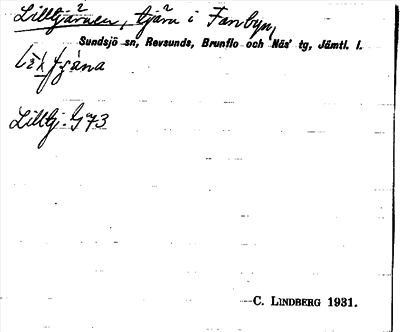 Lilltjärnen, tjärn i Fanbyn,
Sundsjö sn, Revsunds, Brunflo och Näs' tg, Jämtl. l.
Lilltj. G 73
C. LINDBERG 1931.